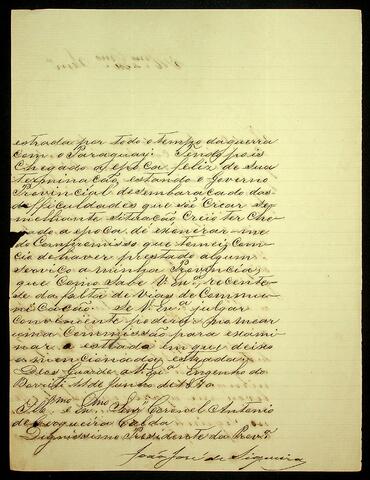 estrada por todo o tempo da guerra
com o Paraguai. Tendo pois
chegado a epoca feliz de sua
terminacão, estando o Governo
Provincial desembaracado das
difficuldades que sóe crear se-
melhante situacão creio ter che-
gado a epoca de exonerar-me
do Compromisso que tomei, com
cia de haver prestado algum
servico a minha Provincia,
que como sabe V. Exª, recente-
se da falta de vias de Commu-
nicacão. Se V. Exª julgar
conveniente poderá nomear
uma Commissão para exami-
nar a estrada em que deixo
a mencionada estrada.
Deos Guarde a V. Exª Engenho do
de Junho de 1870.
Illmo e Exmo Senr Coronel Antonio
de Siqueira Caldas
Dignissimo Presidente da Provª
João José de Siqueira